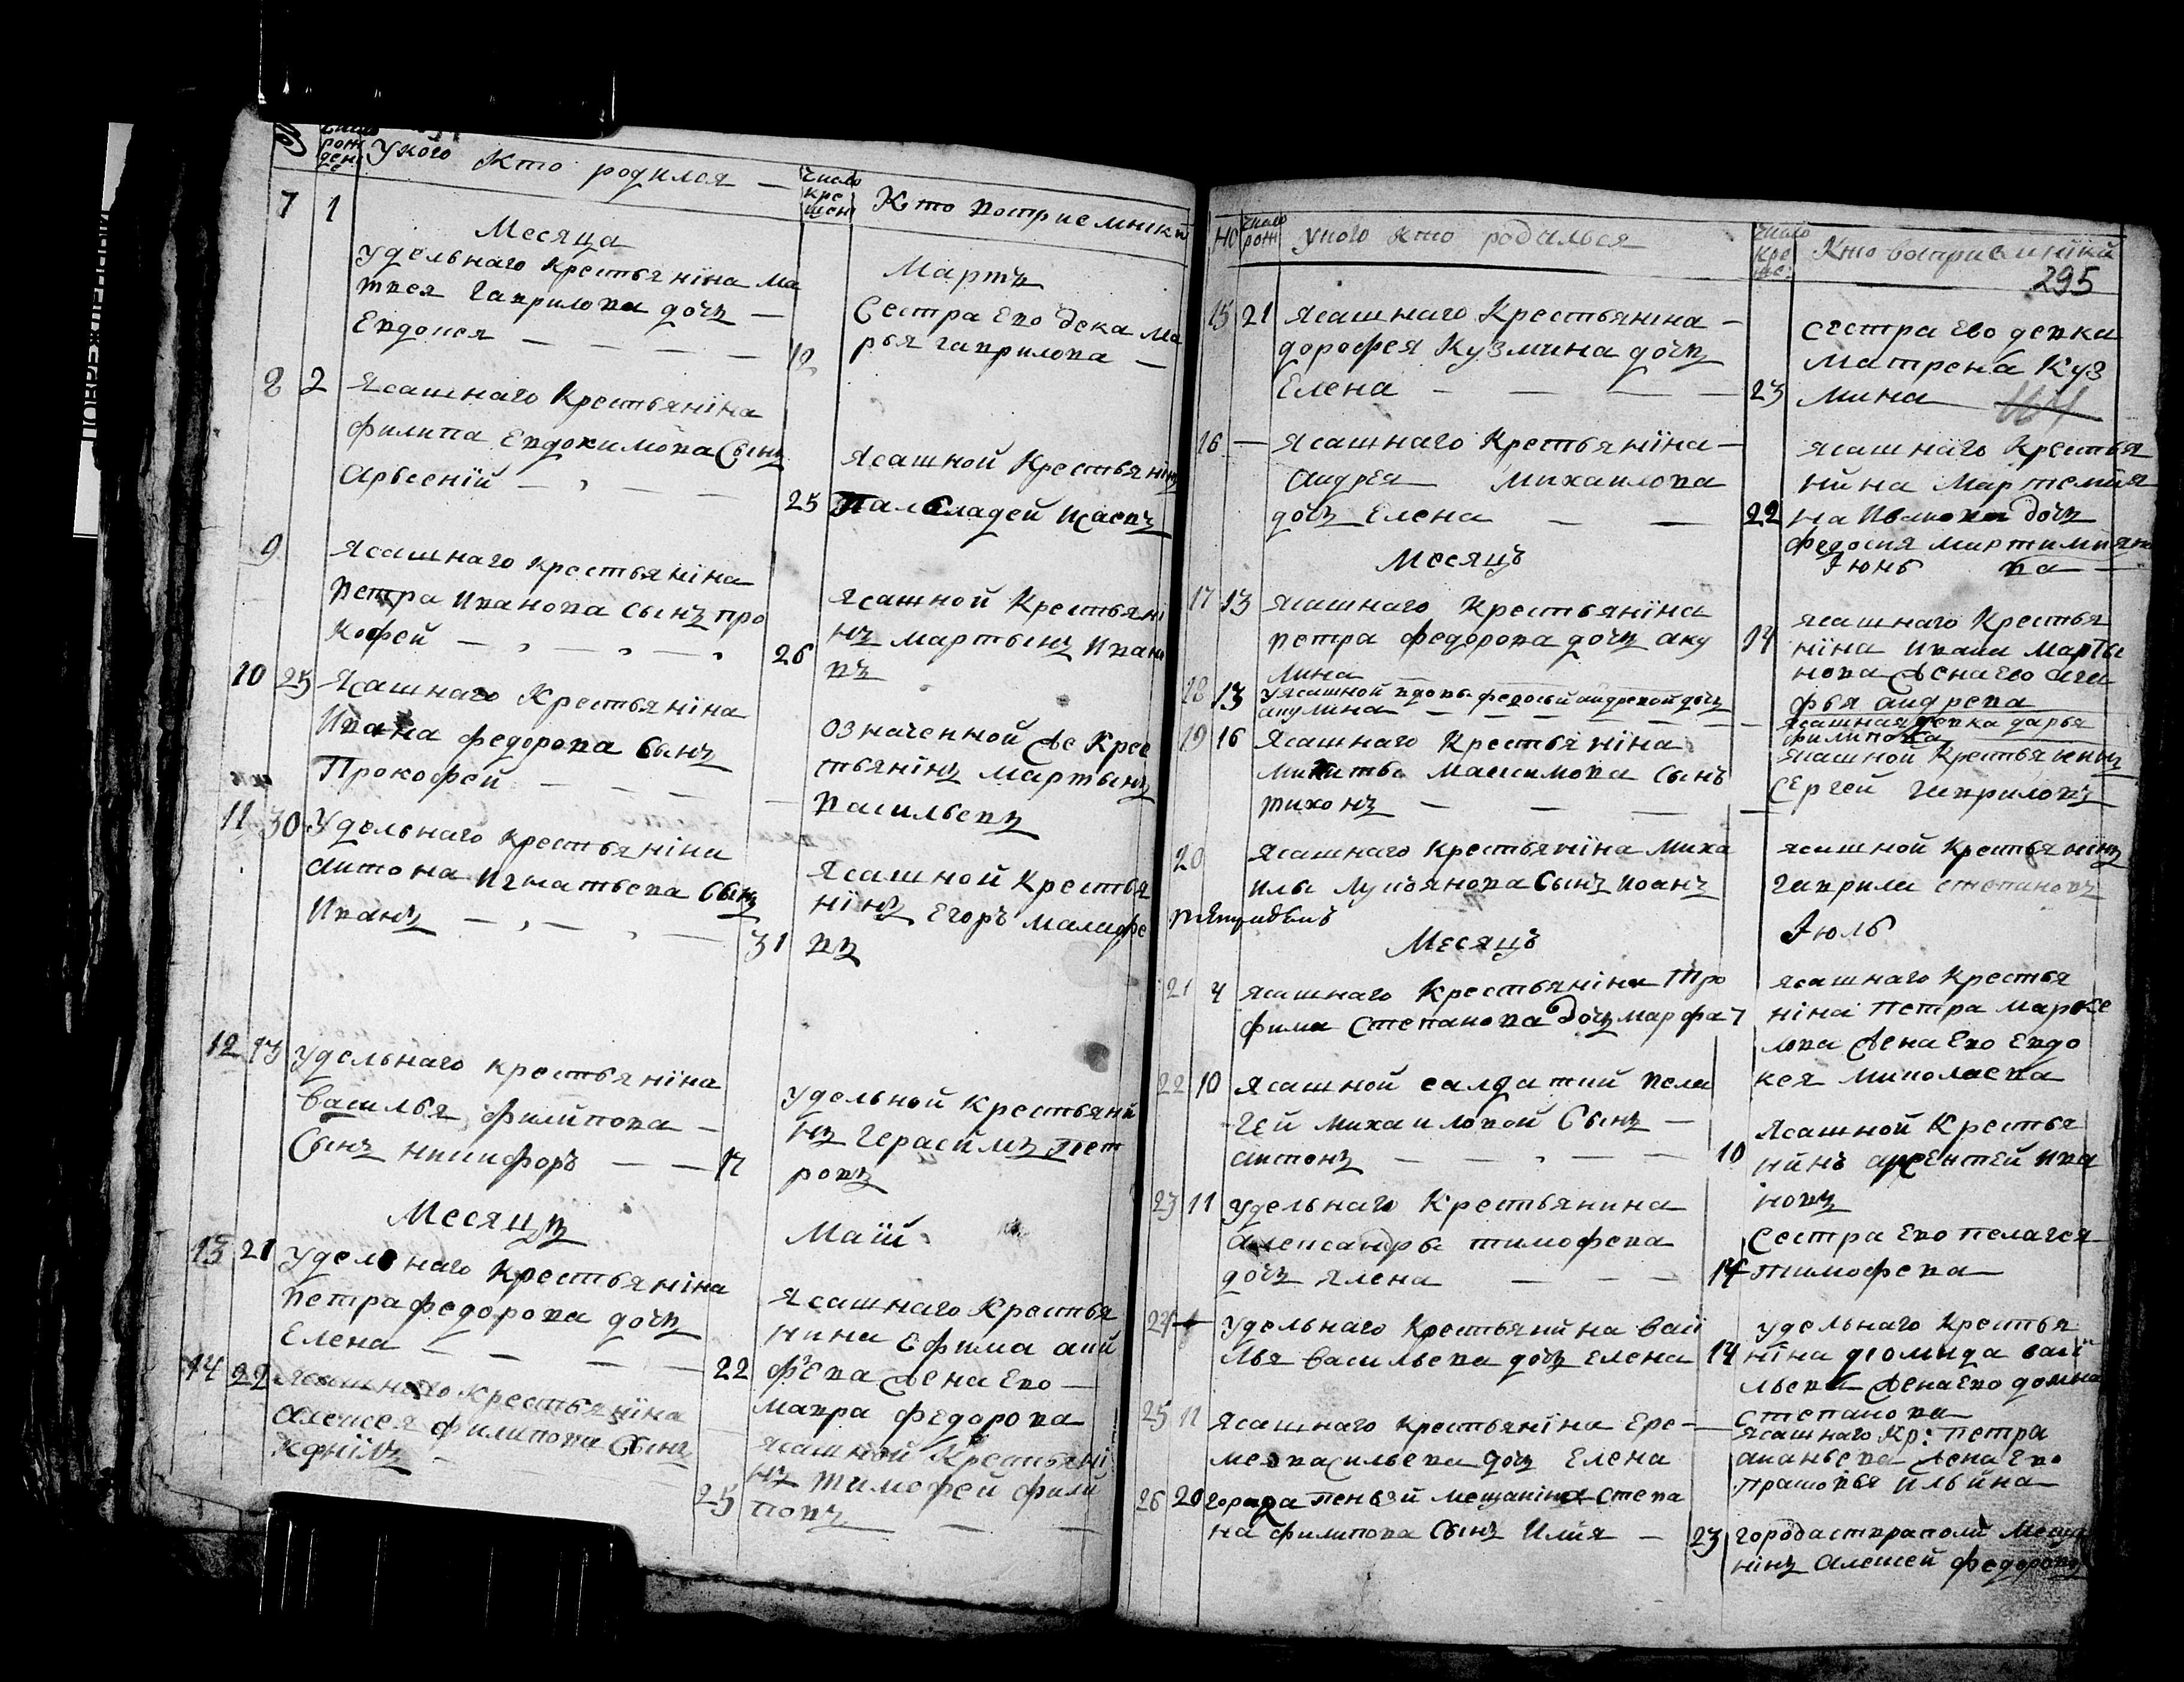 Число рожде
у кого кто родился —
Число кре щен
Кто восприемники
7 1
Месяца
Мартъ
удельнаго крестьянїна Ма
твея Гаврилова дочь —
Евдокея
12
Сестра Ево девка Ма
рья гаврилова —
8 2
Ясашнаго крестьянїна
филипа Евдокимова Сынъ
Арьсенїй
25
Ясашной Крестьянінъ
9
Ясашнаго крестьянїна
Петра Иванова Сынъ про
кофей
26
Ясашной Крестьяні
нъ Мартынъ Ивано
въ
10 25
Ясашнаго Крестьянїна
Ивана федорова Сынъ
Прокофей
означенной же Крес
тьянїнъ мартынъ
Васильевъ
11 30
Удельнаго крестьянїна
антона Игнатьева Сынъ
Иванъ
31
Ясашной Крестья
нїнъ Егоръ
въ
12 13
Удельнаго крестьянїна
Василья филїпова —
Сынъ никифоръ
17
удельной Крестьянй
нъ Герасімъ пет
ровъ
Месяцъ
Маїй
13 21
удельнаго Крестьянїна
Петра федорова дочь
Елена
22
Ясашнаго Крестья
нина Ефима
жена Ево —
Мавра федорова
14 22
Ясашнаго крестьянїна
алексея филипова Сынъ
25
Ясашной Крестьянї
нъ Тимофей фили
повъ
Но
число рож
у кого кто родилься
число кре ще:
Кто восприемнїкй
295
15 21
Ясашнаго Крестьянїна —
дорофея Кузмина дочь
Елена
23
Сестра ево девка
Матрена Куз
мина
16 —
Ясашнаго Крестьянїна —
Андрея Михаилова
дочь Елена
22
ясашнаго Крестья
нйна Мартемья
на Иванова дочь
федосия мартимьяно
ва
Месяцъ
Июнь
17 13
Ясашнаго Крестьянїна
петра федорова дочь аку
лина
14
ясашнаго Крестья
нїна Ивана Марты
нова жена ево ага
фья андрева
18 13
у Ясашной вдовы федосьй андревой дочь
акулина
Ясашная девка дарья
филипова
19 16
Ясашнаго Крестьянїна
Микиты Максимова Сынъ
тихонъ
ясашной Крестьянинъ
Сергей Гавриловъ
20
Ясашнаго крестьянїна Миха
илы Лукъянова Сынъ Иоанъ
ясашной Крестьянїнъ
гаврила степановъ
Месяцъ
Июль
21 4
ясашнаго Крестьянїна Тро
фима Степанова дочь марфа 7
ясашнаго Крестья
нїна Петра Марке
лова жена Ево Евдо
кея Миколаева
22 10
Ясашной салдаткй пела
геи Михаиловой Сынъ —
антонъ
10
Ясашной Крестья
нйнъ Ива
новъ
23 11
удельнаго Крестьянина
Александры тимофева
дочь Ялена
14
Сестра Ево пелагея
тимофева
24
удельнаго крестьянина васї
лья васильева дочь Елена
14
удельнаго Крестья
нїна диомида васї
льева жена Ево домна
Степанова
25 11
Ясашнаго крестьянїна Ере —
мея васильева дочь Елена
Ясашнаго Кр: петра
ананьева жена Ево
прасковья ильйна
26 20
города пеньзй мещаніна Степа
на филипова Сынъ Илїя —
23
города ставраполй Меща
нїнъ алексей федоровъ